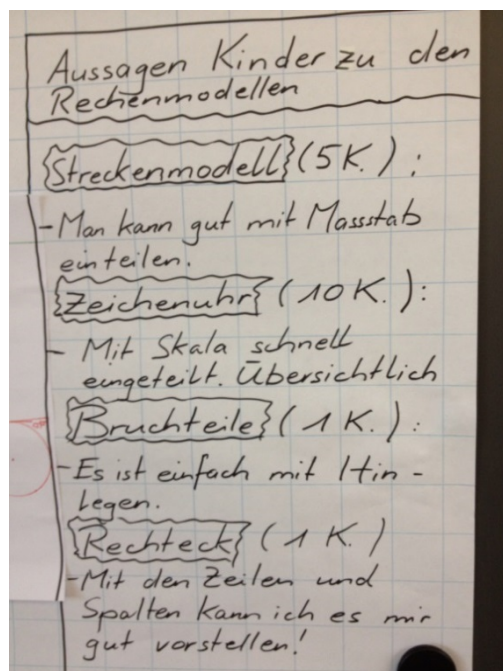 Aussagen Kinder zu den
Rechenmodellen
Streckenmodell (5K.):
- Man kann gut mit Massstab
einteilen.
Zeichenuhr (10K.):
- Mit Skala schnell
eingeteilt. Übersichtlich
Bruchteile (1K.):
- Es ist einfach mit Hin-
legen.
Rechteck (1K.)
- Mit den Zeilen und
Spalten kann ich es mir
gut vorstellen!